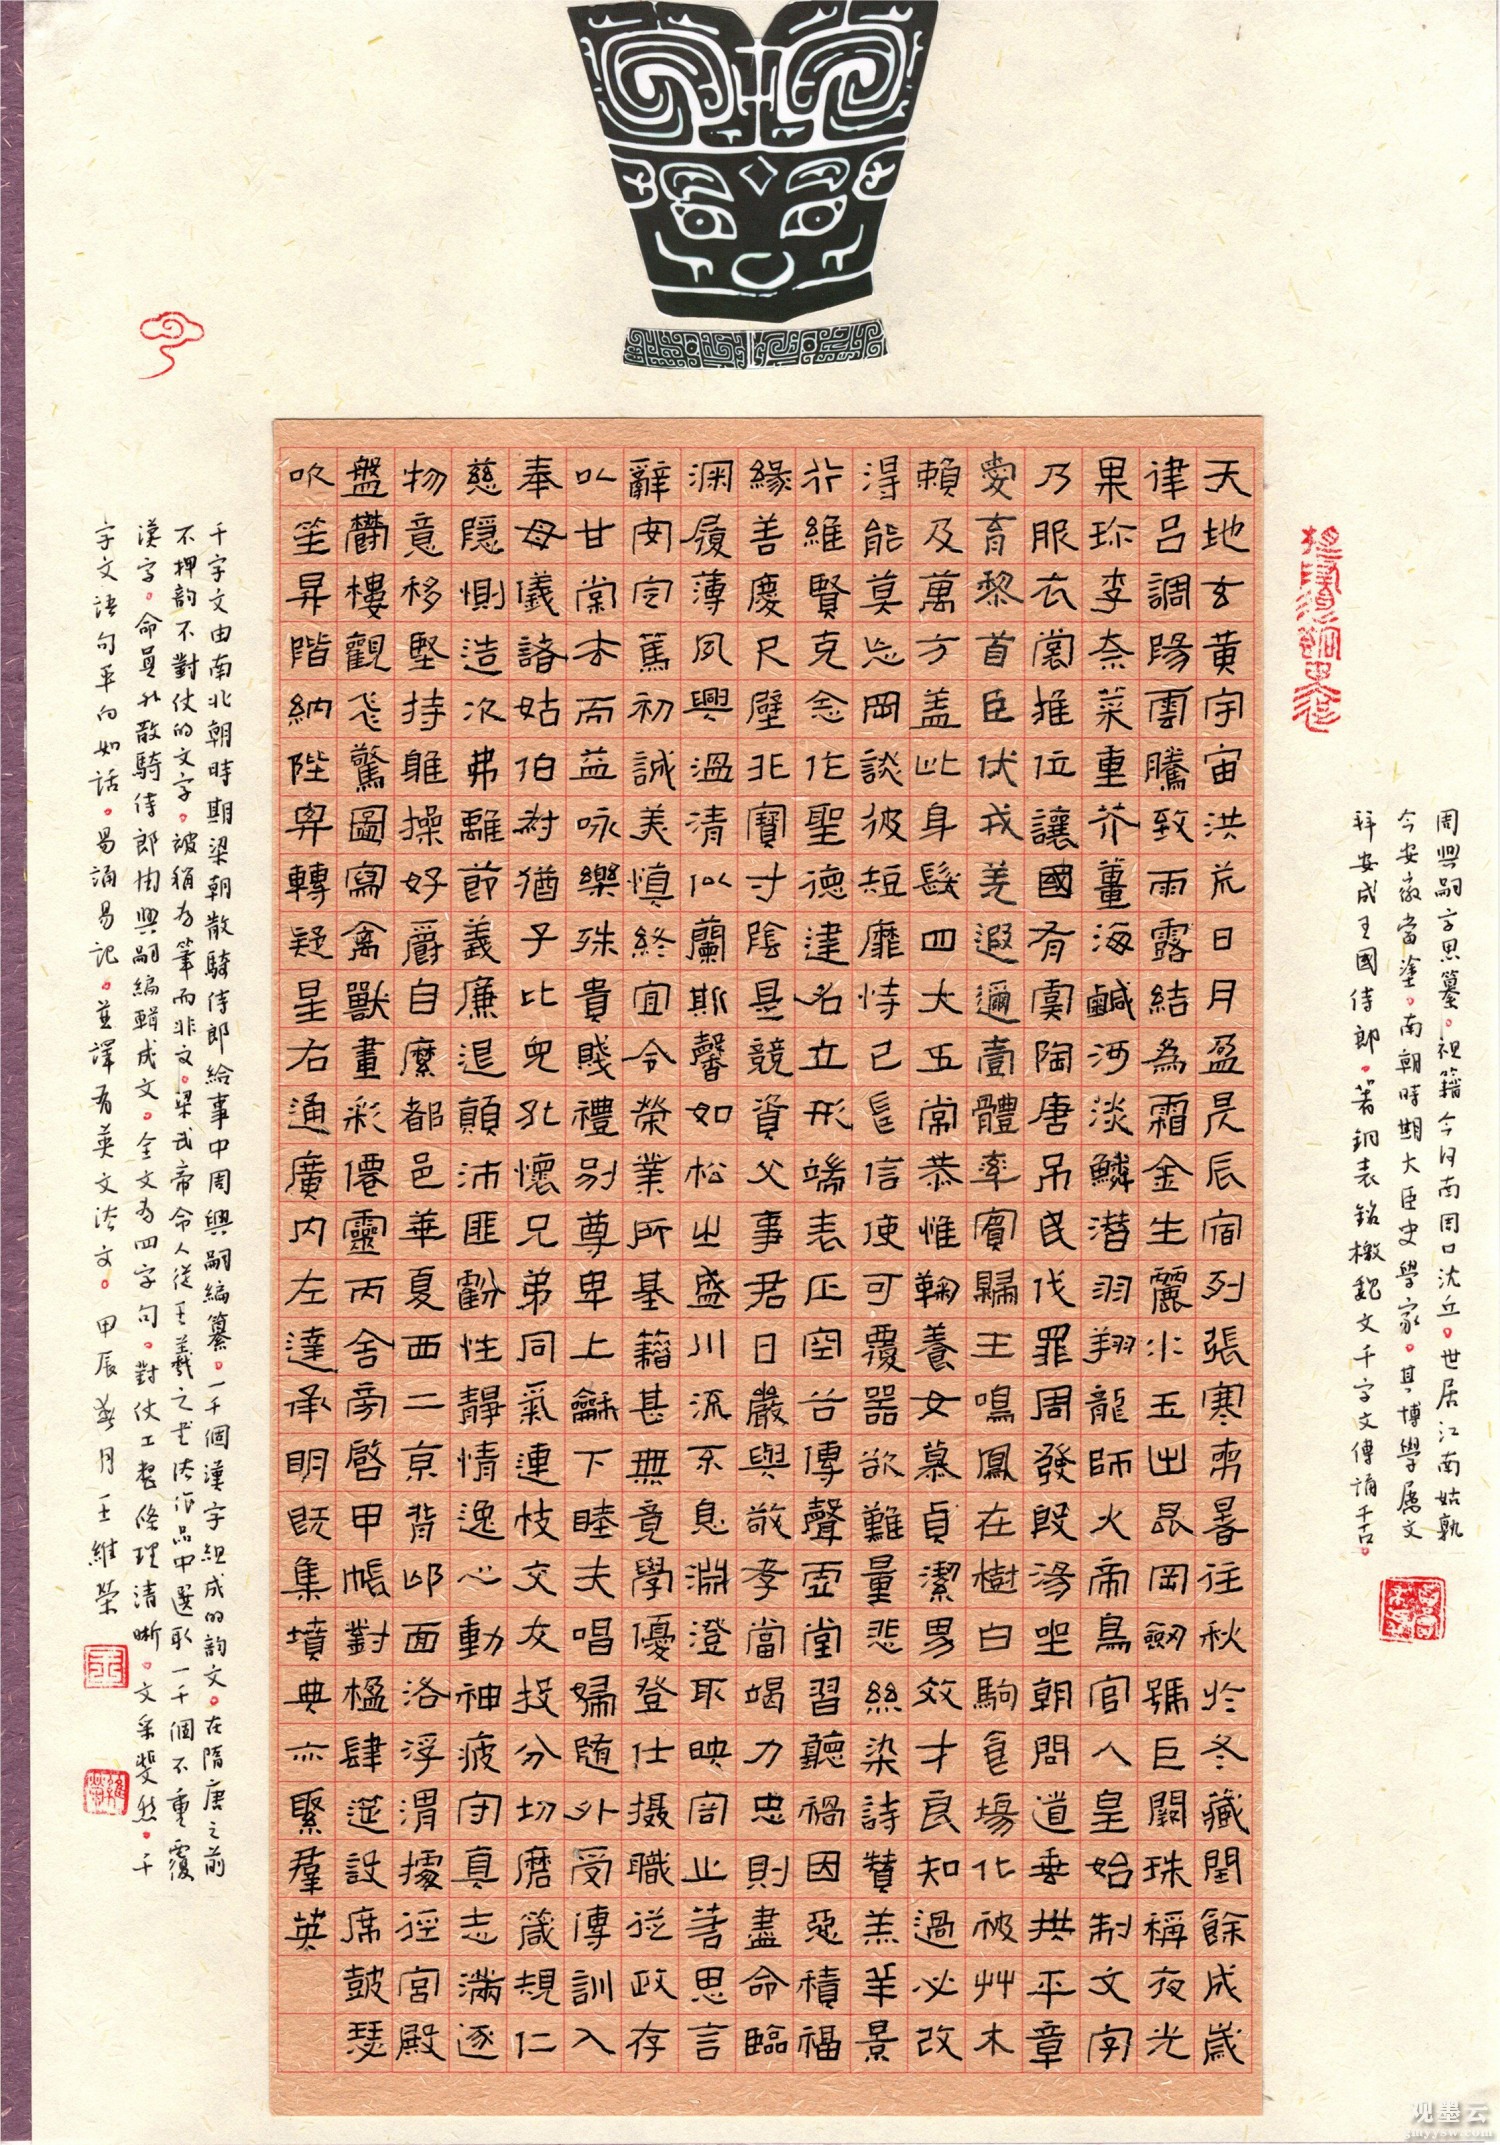 天地玄黃宇宙洪荒日月盈昃辰宿列張寒來暑往秋收冬藏閏餘成歲
律呂調陽雲騰致雨露結為霜金生麗水玉出崑岡劍號巨闕珠稱夜光
果珍李奈菜重芥薑海鹹河淡鱗潛羽翔龍師火帝鳥官人皇始制文字
乃服衣裳推位讓國有虞陶唐吊民伐罪周發殷湯坐朝問道垂拱平章
愛育黎首臣伏戎羌遐邇壹體率賓歸王鳴鳳在樹白駒食場化被艸木
賴及萬方盖此身髮四大五常恭惟鞠養女慕貞潔男效才良知過必改
得能莫忘罔談彼短靡恃己長信使可覆器欲難量悲絲染詩贊羔羊景
行維賢克念作聖德建名立形端表正空谷傳聲虛堂習聽禍因惡積福
緣善慶尺璧非寶寸陰是競資父事君曰嚴與敬孝當竭力忠則盡命臨
深履薄夙興溫清似蘭斯馨如松之盛川流不息淵澄取映容止若思言
辭安定篤初誠美慎終宜令榮業所基籍甚無竟學優登仕攝職從政存
以甘棠去而益咏樂殊貴賤禮別尊卑上龢下睦夫唱婦隨外受傅訓入
奉母儀諸姑伯叔猶子比兒孔懷兄弟同氣連枝交友投分切磨箴規仁
慈隱惻造次弗離節義廉退顛沛匪虧性靜情逸心動神疲守真志滿逐
物意移堅持雅操好爵自縻都邑華夏西二京背邙面洛浮渭據涇宮殿
盤鬱樓觀飛驚圖寫禽獸畫彩僊靈丙舍旁啓甲帳對楹肆筵設席鼓瑟
吹笙昇階納陛弁轉疑星右通廣內左達承明既集墳典亦聚羣英
周興嗣字思纂。祖籍今河南周口沈丘。世居江南姑孰
今安徽當塗。南朝時期大臣史學家。其博學屬文
拜安成王國侍郎。著銅表銘檄魏文千字文傳誦千古。
千字文由南北朝時期梁朝散騎侍郎給事中周興嗣編纂。一千個漢字組成的韵文。在隋唐之前
不押韵不對仗的文字。被稱為筆而非文。梁武帝令人從王羲之書法作品中選取一千個不重覆
漢字。命員外散騎侍郎周興嗣編輯成文。全文為四字句。對仗工整條理清晰。文采斐然。千
字文語句平白如話。易誦易記。並譯有英文法文。甲辰荷月王維榮
观墨云
gmyysw.com